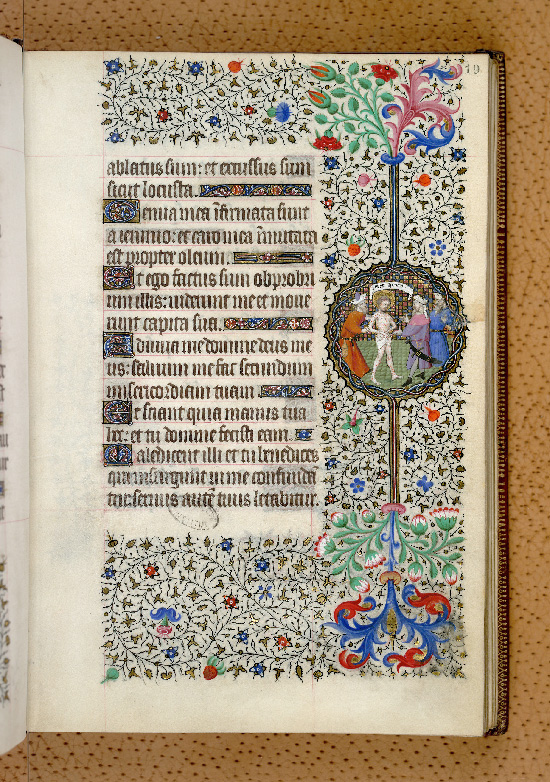 19
ablatus sum: et excussus sum
sicut locusta.
Genua mea ifirmata sunt
a ieiunio: et caro mea imutata
est propter oleum.
Et ego factus sum obprobri
um illis: uiderunt me et moue
runt capita sua.
Adiuua me domine deus me
us: saluum me fac secundum
misericordiam tuam
Et sciant quia manus tua
hec: et tu domine fecisti eam.
Maledicent illi et tu benedices
qui insurgunt in me confunda
tur: seruus autē tuus letabitur.